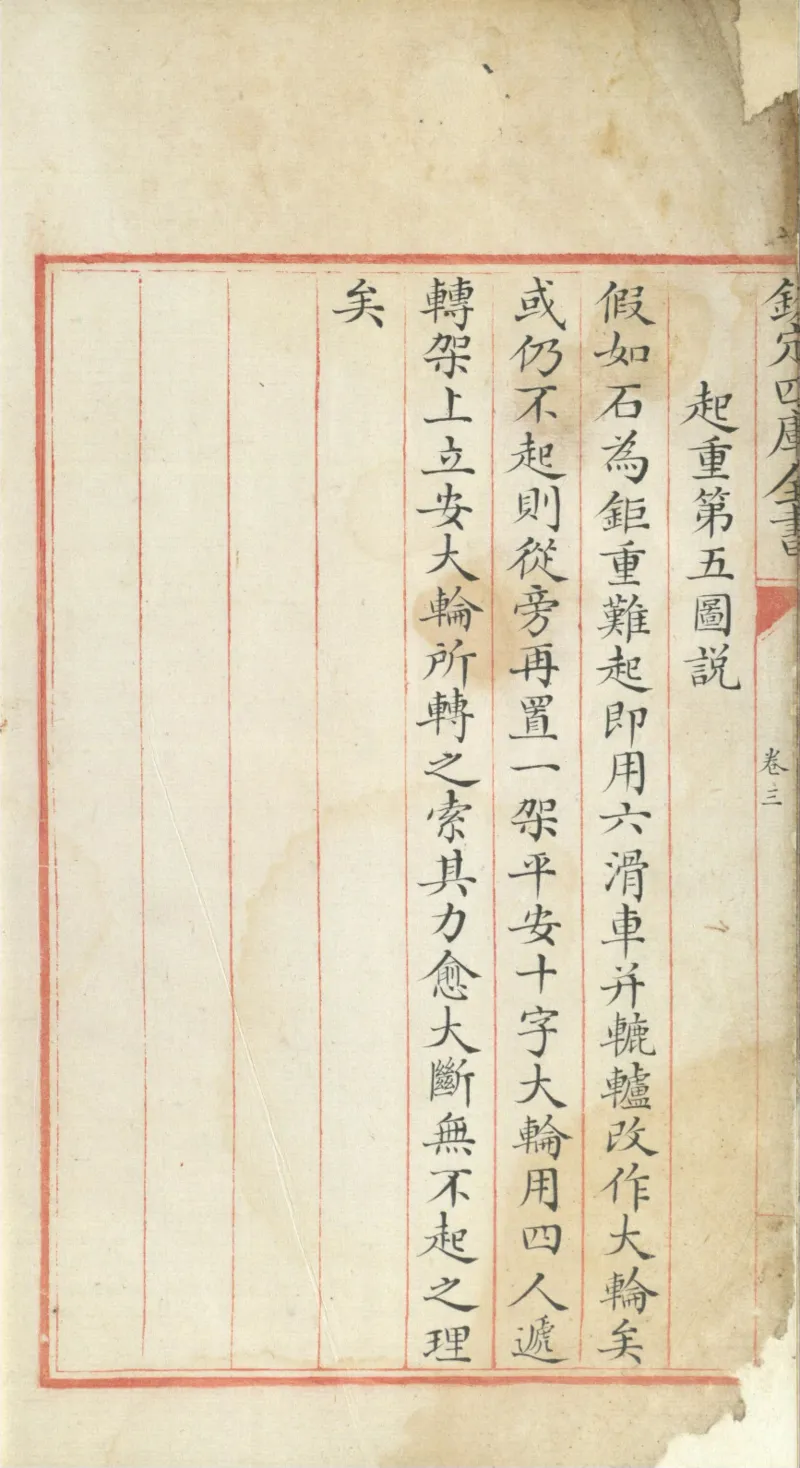 欽定四庫全書
卷三
起重第五圖説
假如石為鉅重難起即用六滑車并轆轤改作大輪矣
或仍不起則從旁再置一架平安十字大輪用四人遞
轉架上立安大輪所轉之索其力愈大斷無不起之理
矣